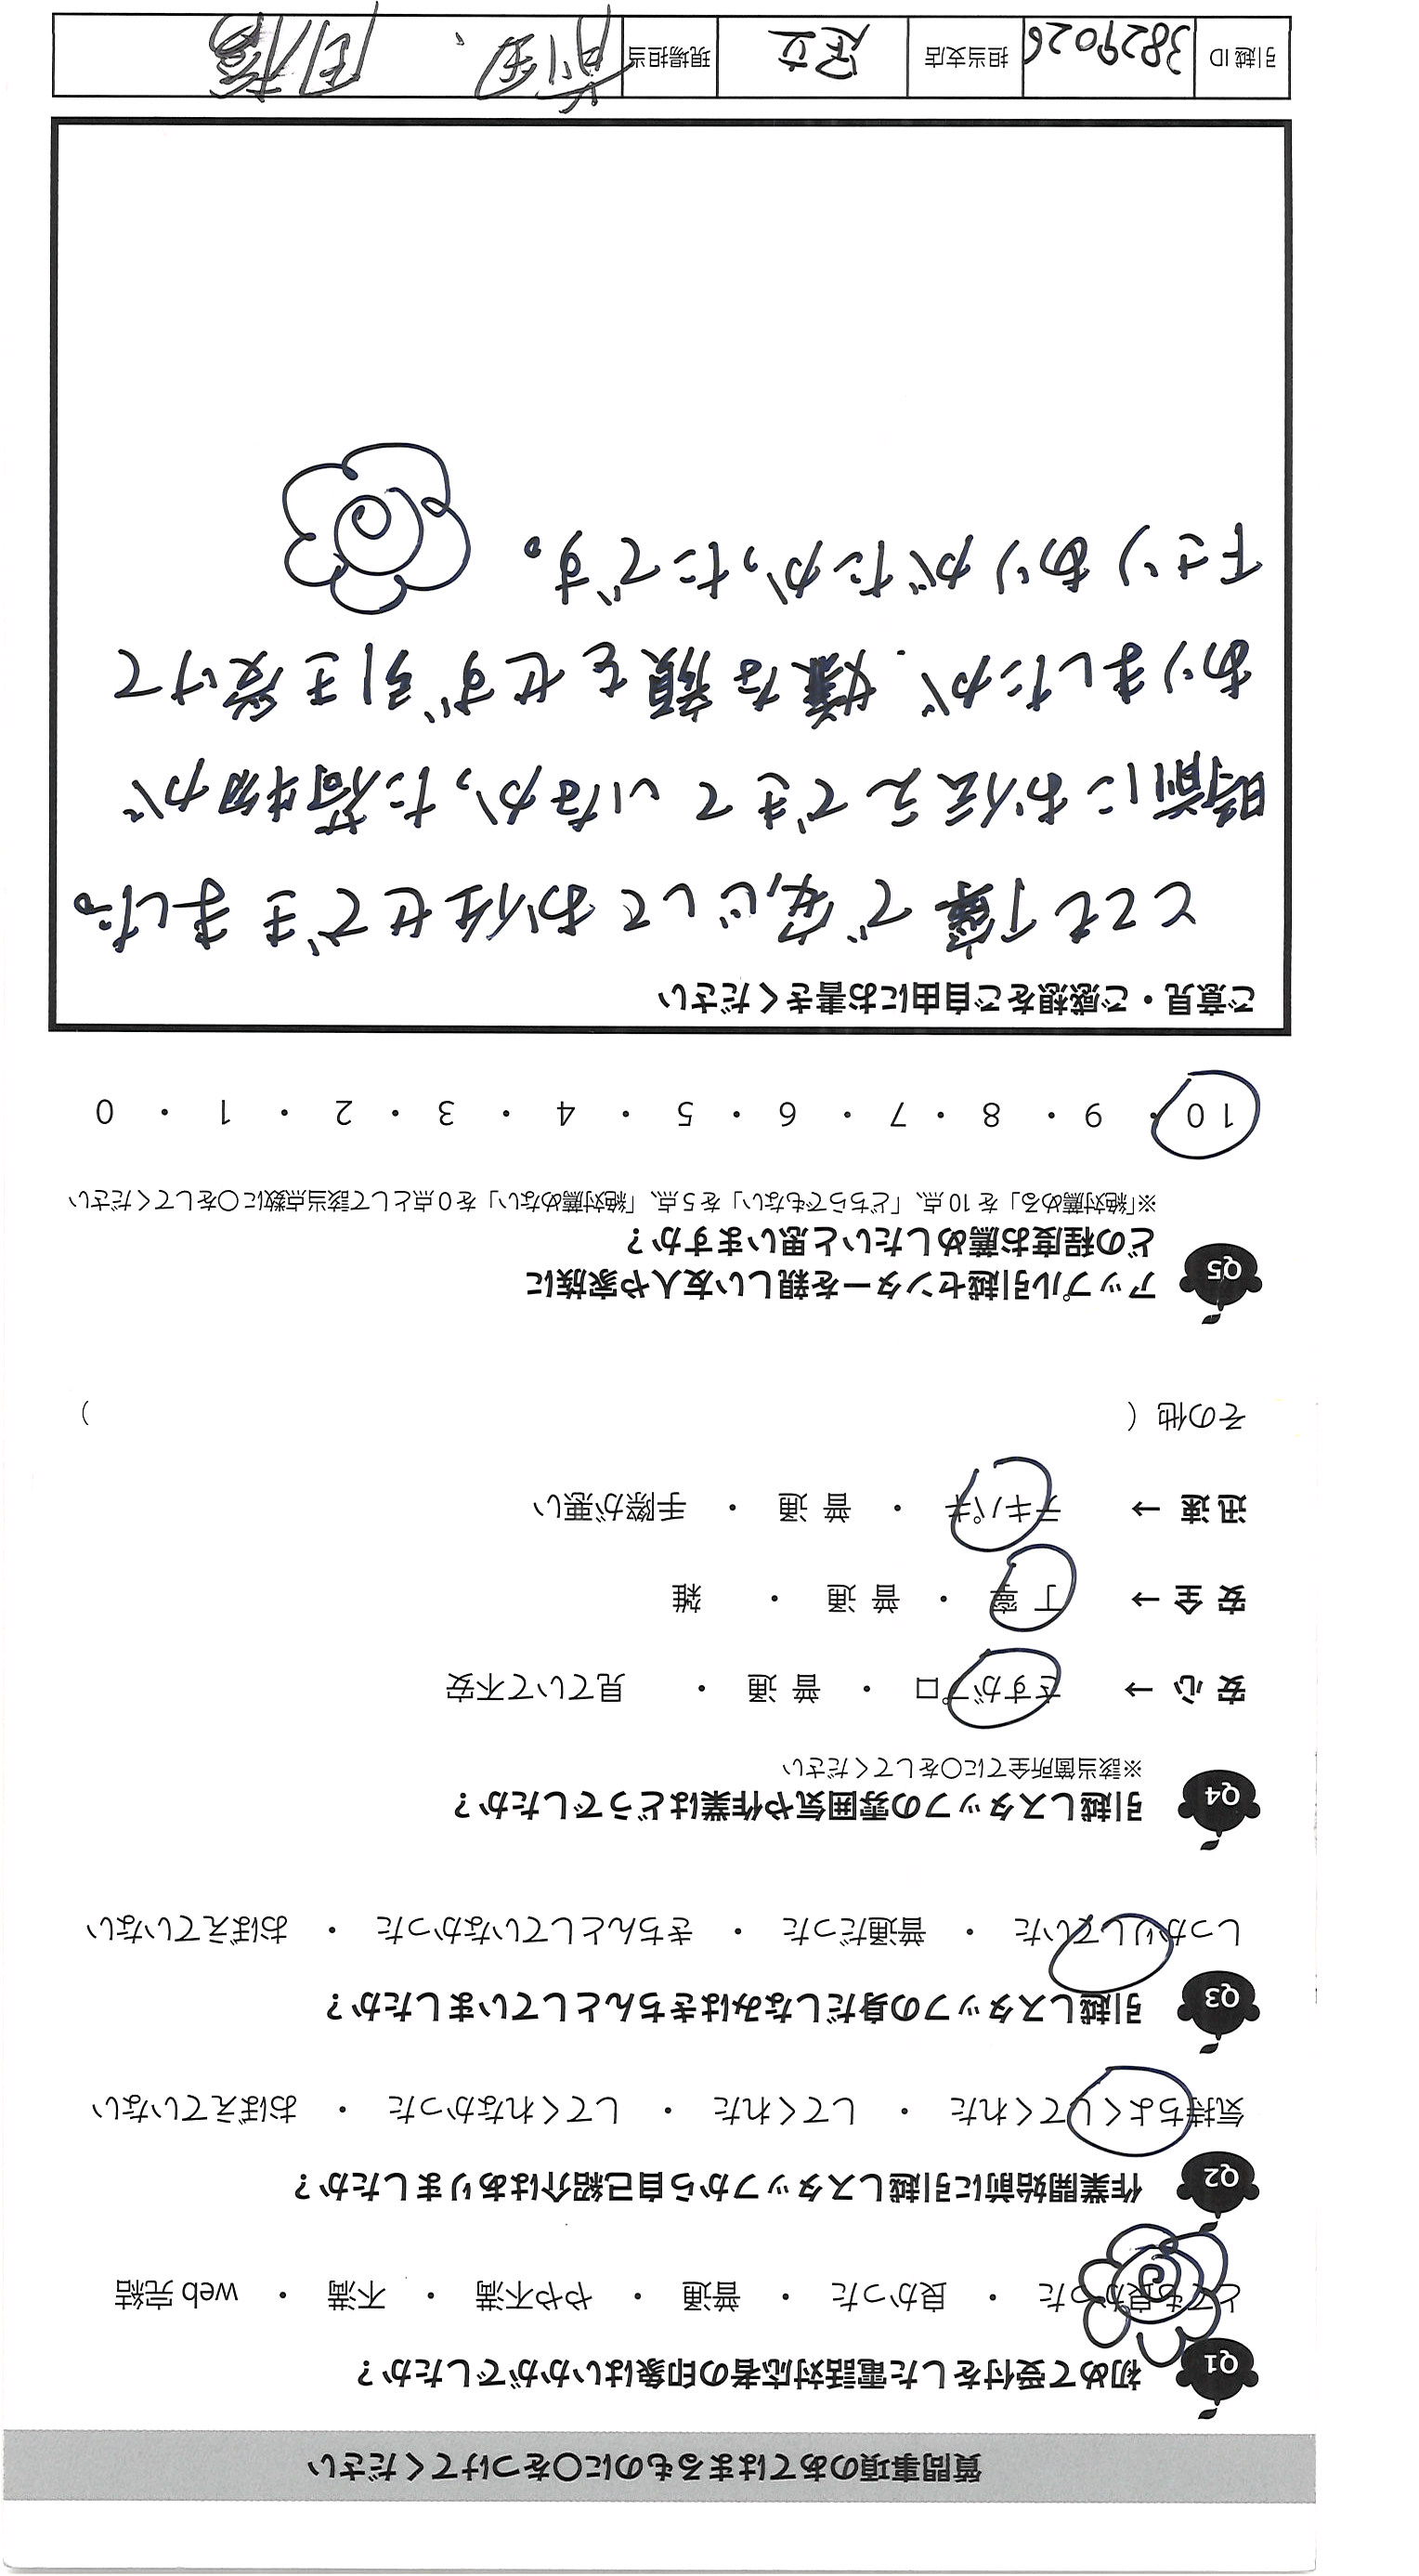 質問事項のあてはまるものに〇をつけてください
Q1 初めて受付をした電話対応者の印象はいかがでしたか？
とても良かった ・ 良かった ・ 普通 ・ やや不満 ・ 不満 ・ web 完結
Q2 作業開始前に引越しスタッフから自己紹介はありましたか？
気持ちよくしてくれた ・ してくれた ・ してくれなかった ・ おぼえていない
Q3 引越しスタッフの身だしなみはきちんとしていましたか？
しっかりしていた ・ 普通だった ・ きちんとしていなかった ・ おぼえていない
Q4 引越しスタッフの雰囲気や作業はどうでしたか？
※該当箇所全てに〇をしてください
安 心 → さすがプロ ・ 普 通 ・ 見ていて不安
安 全 → 丁 寧 ・ 普 通 ・ 雑
迅 速 → テキパキ ・ 普 通 ・ 手際が悪い
その他（ ）
Q5 アップル引越センターを親しい友人や家族に
どの程度お薦めしたいと思いますか？
※「絶対薦める」を 10 点、「どちらでもない」を 5 点、「絶対薦めない」を 0 点として該当点数に〇をしてください
10 ・ 9 ・ 8 ・ 7 ・ 6 ・ 5 ・ 4 ・ 3 ・ 2 ・ 1 ・ 0
ご意見・ご感想をご自由にお書きください
とても丁寧で安心してお任せできました。
時前にお伝えできていなかった荷物が
ありましたが、嫌な顔をせず引き受けて
下さりありがたかったです。
引越 ID 3829026 担当支店 足立 現場担当 前田、